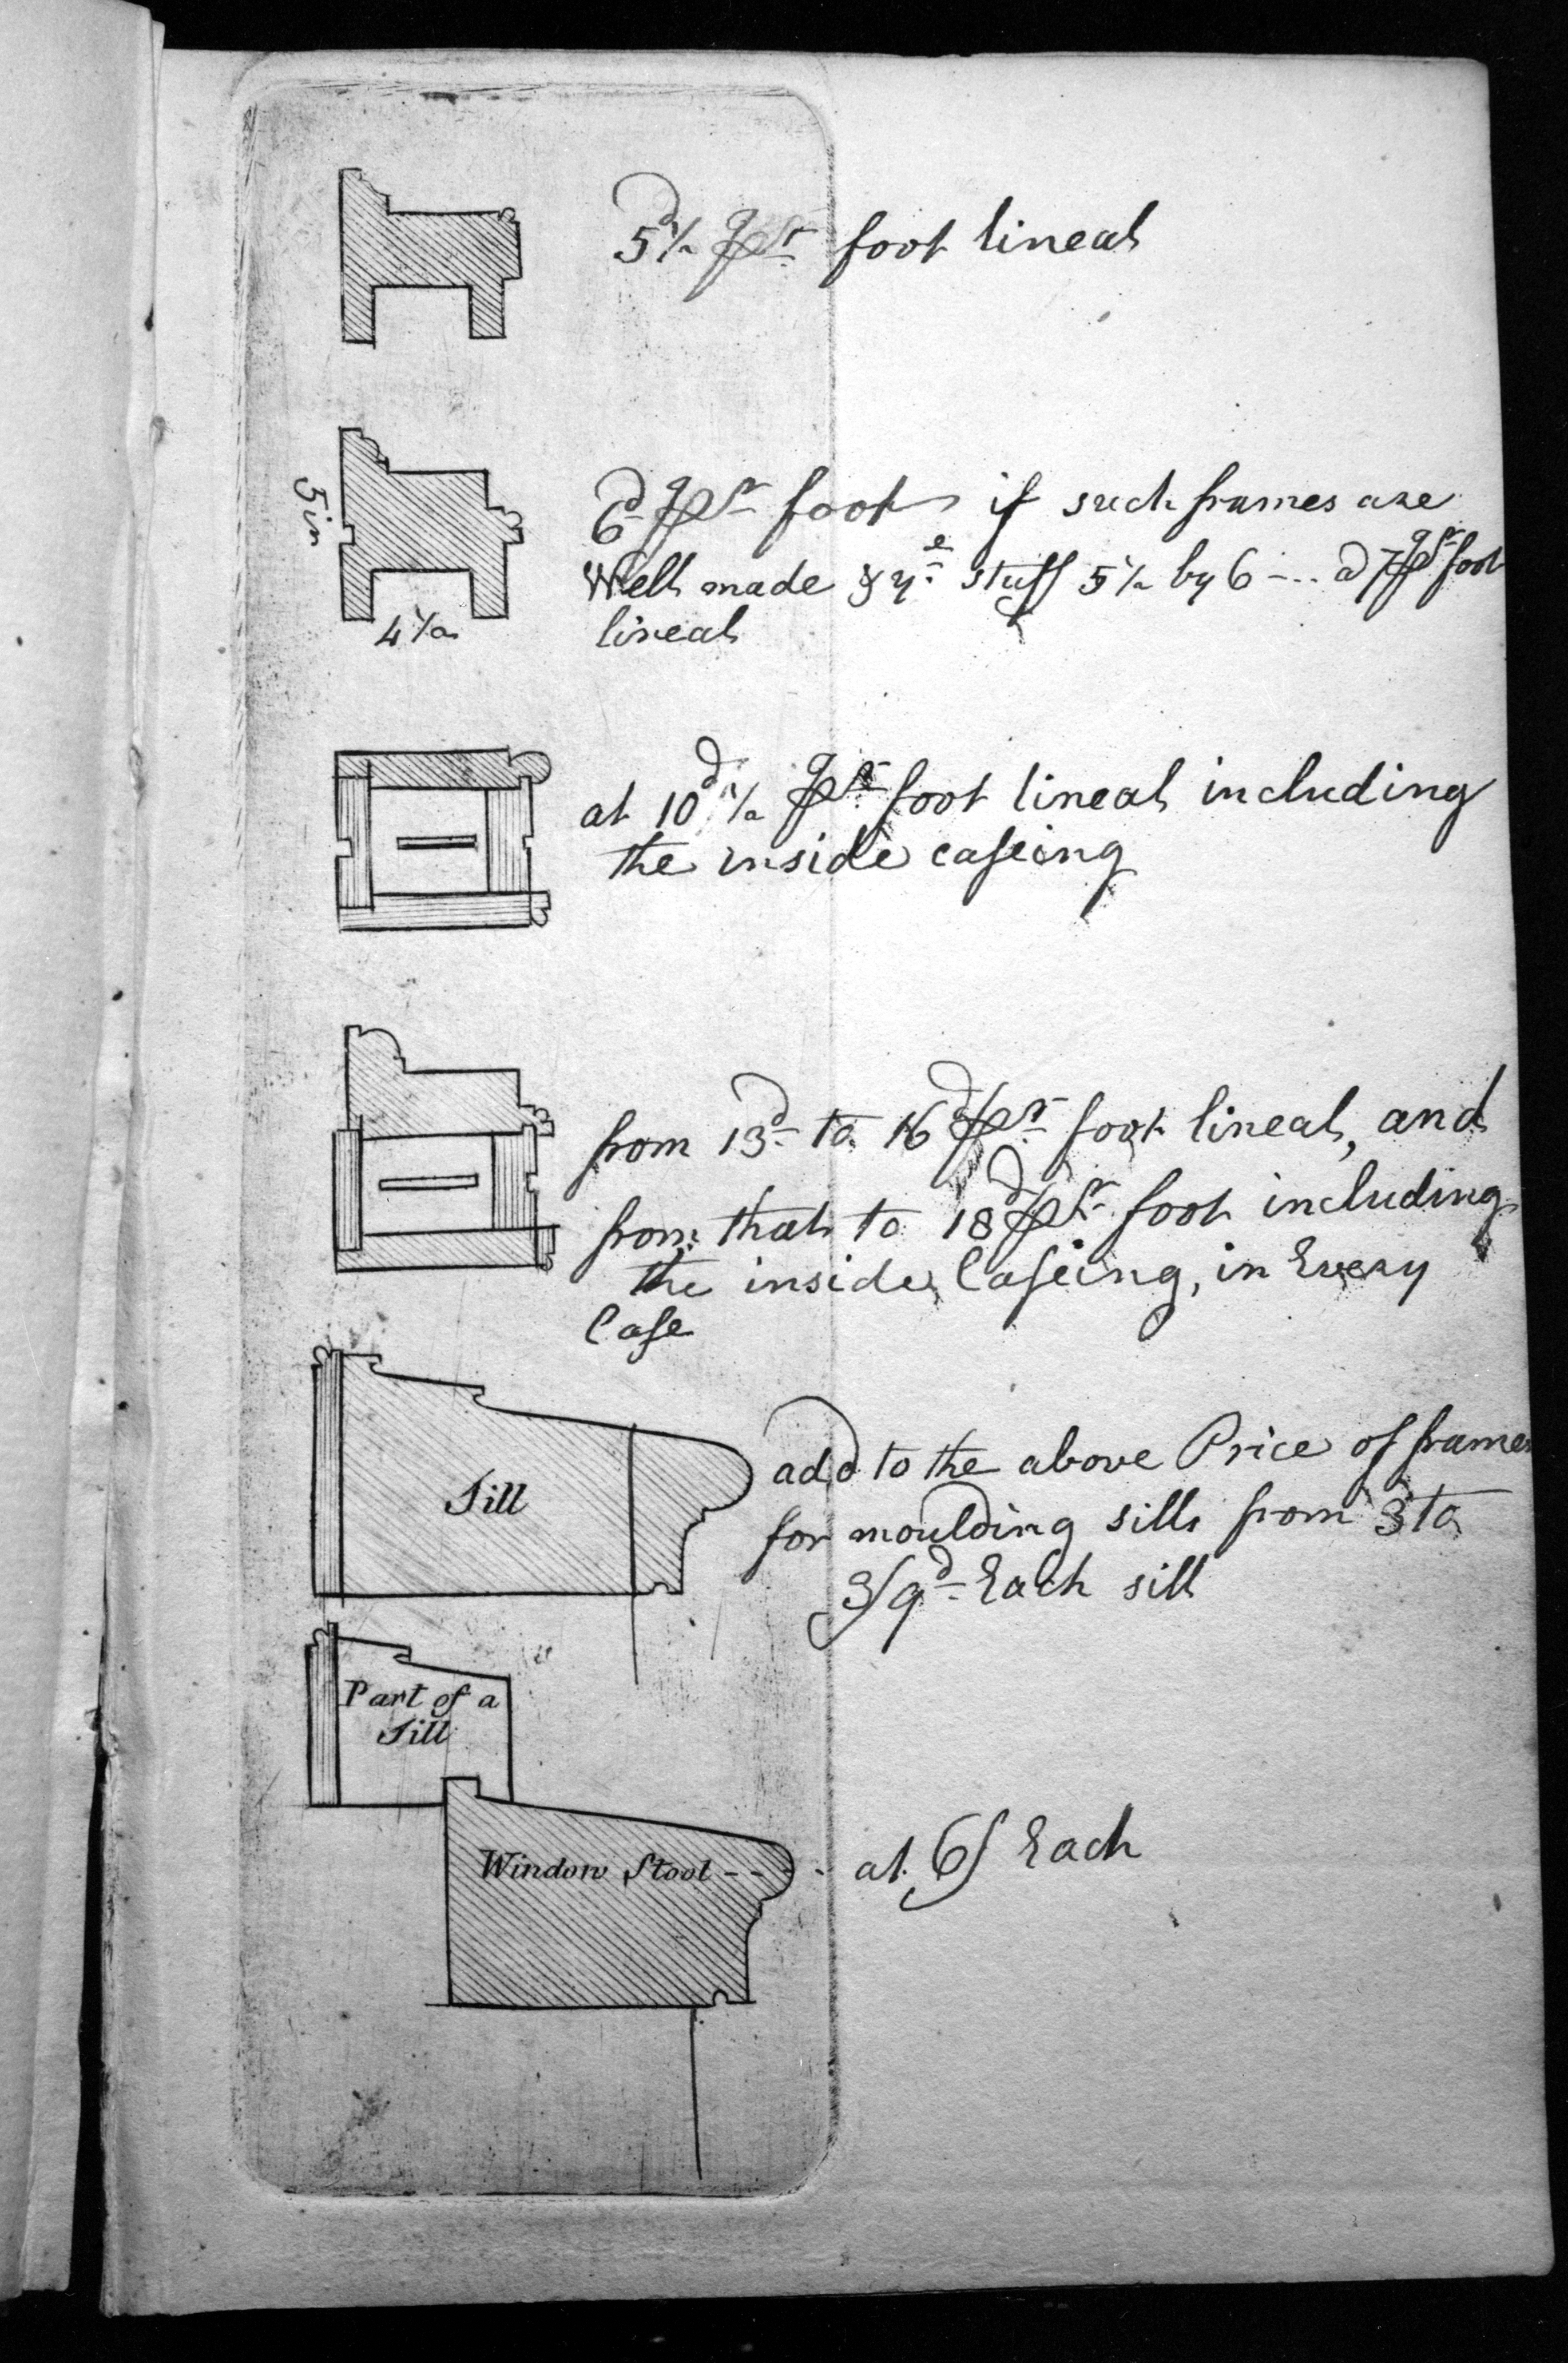 5d 1/2 pr foot lineal
5 in
6d pr foot if such frames are
Well made & ye stuff 5 1/2 by 6 --- d 7 pr foot
lineal
4 1/2
at 10d 1/2 pr foot lineal including
the inside caseing
from 13d to 16d pr foot lineal, and
from that to 18d pr foot including
the inside Caseing, in Every
Case
Sill
add to the above Price of frames
for moulding sills from 3 to
3/9d Each sill
Part of a
Sill
Window Stool - - - - at 6/ Each